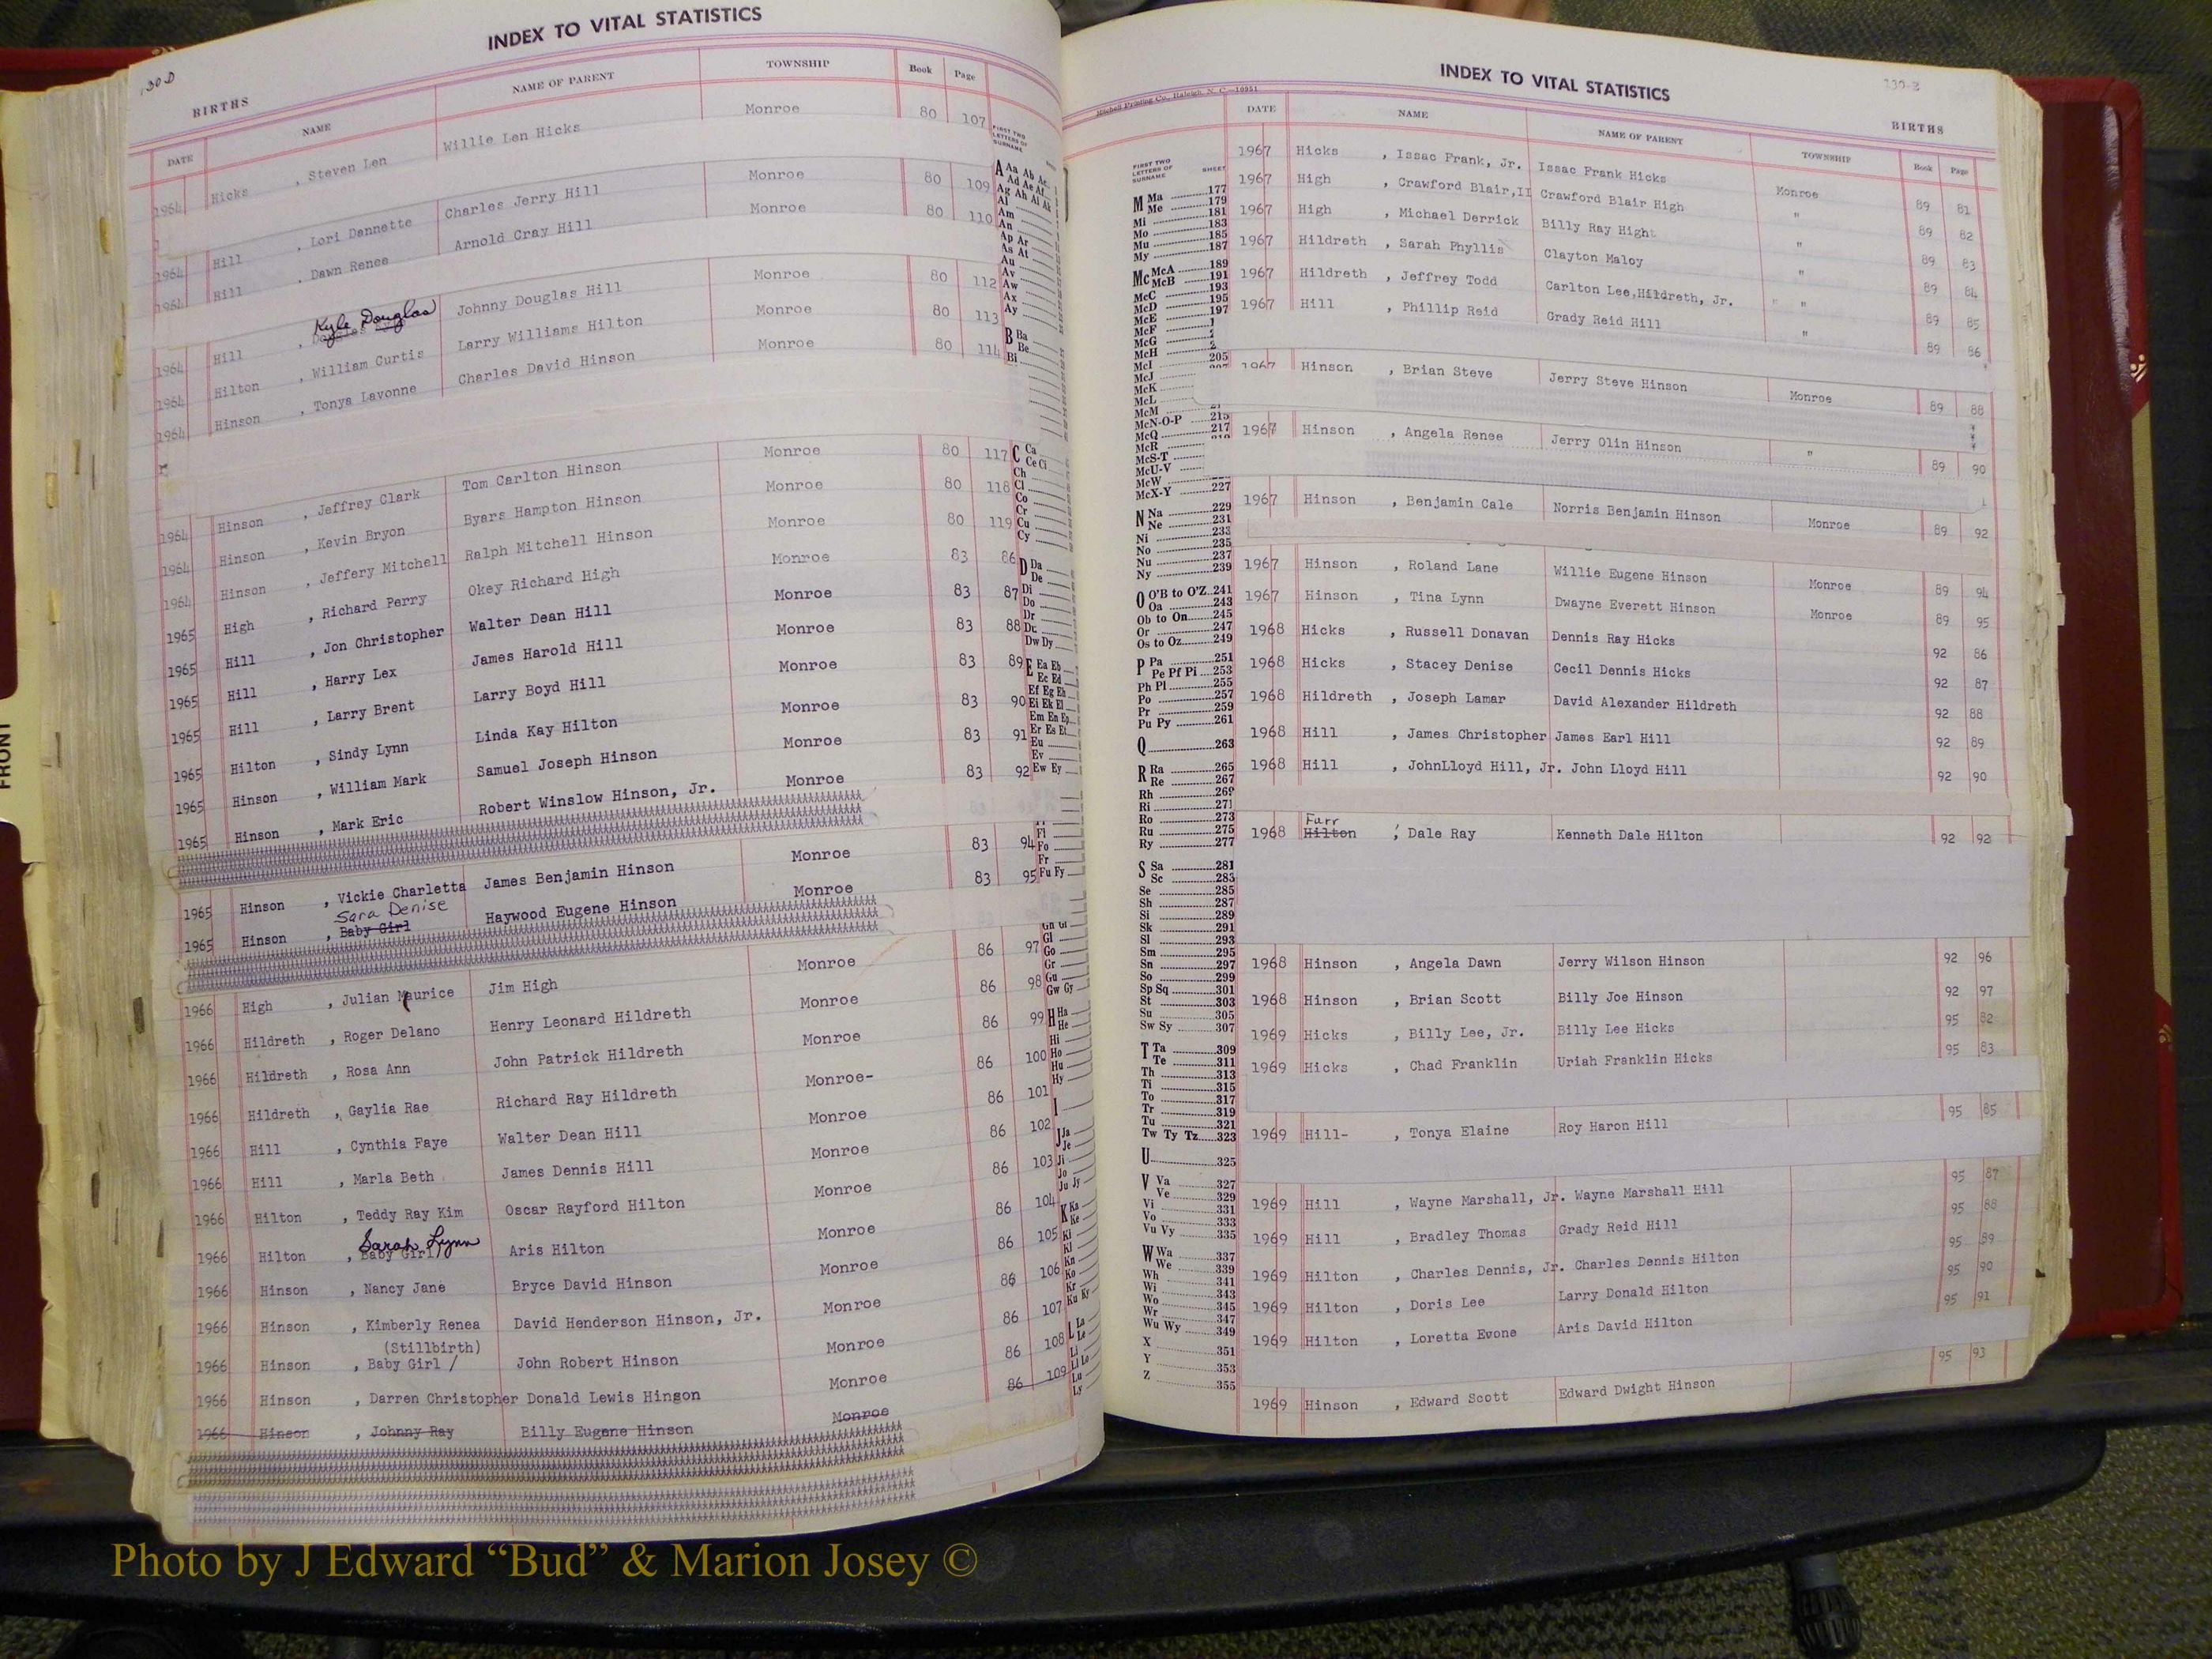 130 D
INDEX TO VITAL STATISTICS
BIRTHS
DATE NAME NAME OF PARENT TOWNSHIP Book Page
1964 Hicks , Steven Len Willie Len Hicks Monroe 80 107
1964 Hill , Lori Dannette Charles Jerry Hill Monroe 80 109
1964 Hill , Dawn Renee Arnold Cray Hill Monroe 80 110
1964 Hill , Kyle Douglas Johnny Douglas Hill Monroe 80 112
1964 Hilton , William Curtis Larry Williams Hilton Monroe 80 113
1964 Hinson , Tonya Lavonne Charles David Hinson Monroe 80 114
1964 Hinson , Jeffrey Clark Tom Carlton Hinson Monroe 80 117
1964 Hinson , Kevin Bryon Byars Hampton Hinson Monroe 80 118
1964 Hinson , Jeffery Mitchell Ralph Mitchell Hinson Monroe 80 119
1965 High , Richard Perry Okey Richard High Monroe 83 86
1965 Hill , Jon Christopher Walter Dean Hill Monroe 83 87
1965 Hill , Harry Lex James Harold Hill Monroe 83 88
1965 Hill , Larry Brent Larry Boyd Hill Monroe 83 89
1965 Hilton , Sindy Lynn Linda Kay Hilton Monroe 83 90
1965 Hinson , William Mark Samuel Joseph Hinson Monroe 83 91
1965 Hinson , Mark Eric Robert Winslow Hinson, Jr. Monroe 83 92
1965 Hinson , Vickie Charletta James Benjamin Hinson Monroe 83 94
Sara Denise
1965 Hinson , Baby Girl Haywood Eugene Hinson Monroe 83 95
1966 High , Julian Maurice Jim High Monroe 86 97
1966 Hildreth , Roger Delano Henry Leonard Hildreth Monroe 86 98
1966 Hildreth , Rosa Ann John Patrick Hildreth Monroe 86 99
1966 Hildreth , Gaylia Rae Richard Ray Hildreth Monroe- 86 100
1966 Hill , Cynthia Faye Walter Dean Hill Monroe 86 101
1966 Hill , Marla Beth James Dennis Hill Monroe 86 102
1966 Hilton , Teddy Ray Kim Oscar Rayford Hilton Monroe 86 103
Sarah Lynn
1966 Hilton , Baby Girl Aris Hilton Monroe 86 104
1966 Hinson , Nancy Jane Bryce David Hinson Monroe 86 105
1966 Hinson , Kimberly Renea David Henderson Hinson, Jr. Monroe 86 106
(Stillbirth)
1966 Hinson , Baby Girl / John Robert Hinson Monroe 86 107
1966 Hinson , Darren Christopher Donald Lewis Hingon Monroe 86 108
1966 Hinson , Johnny Ray Billy Eugene Hinson Monroe 86 109
FIRST TWO
LETTERS OF
SURNAME
A Aa Ab Ac
Ad Ae Af
Ag Ah Ai Ak
Al
Am
An
Ap Ar
As At
Au
Av
Aw
Ax
Ay
B Ba
Be
Bi
C Ca
Ce Ci
Ch
Cl
Co
Cr
Cu
Cy
D Da
De
Di
Do
Dr
Du
Dw Dy
E Ea Eb
Ec Ed
Ef Eg Eh
Ei Ek El
Em En Ep
Er Es Et
Eu
Ev
Ew Ey
Fl
Fo
Fr
Fu Fy
Gh Gi
Gl
Go
Gr
Gu
Gw Gy
H Ha
He
Hi
Ho
Hu
Hy
I
J Ja
Je
Ji
Jo
Ju Jy
K Ka
Ke
Ki
Kl
Kn
Ko
Kr
Ku Ky
L La
Le
Li
Ll Lo
Lu
Ly
INDEX TO VITAL STATISTICS
Mitchell Printing Co., Raleigh, N. C.—10951
BIRTHS
DATE NAME NAME OF PARENT TOWNSHIP Book Page
FIRST TWO
LETTERS OF
SURNAME SHEET
M Ma 177
Me 179
Mi 181
Mo 183
Mu 185
My 187
Mc McA 189
McB 191
McC 193
McD 195
McE 197
McF
McG
McH
McI 205
McJ
McK
McL
McM
McN-O-P 215
McQ 217
McR
McS-T
McU-V
McW
McX-Y 227
N Na 229
Ne 231
Ni 233
No 235
Nu 237
Ny 239
O O'B to O'Z 241
Oa 243
Ob to On 245
Or 247
Os to Oz 249
P Pa 251
Pe Pf Pi 253
Ph Pl 255
Po 257
Pr 259
Pu Py 261
Q 263
R Ra 265
Re 267
Rh 269
Ri 271
Ro 273
Ru 275
Ry 277
S Sa 281
Sc 283
Se 285
Sh 287
Si 289
Sk 291
Sl 293
Sm 295
Sn 297
So 299
Sp Sq 301
St 303
Su 305
Sw Sy 307
T Ta 309
Te 311
Th 313
Ti 315
To 317
Tr 319
Tu 321
Tw Ty Tz 323
U 325
V Va 327
Ve 329
Vi 331
Vo 333
Vu Vy 335
W Wa 337
We 339
Wh 341
Wi 343
Wo 345
Wr 347
Wu Wy 349
X 351
Y 353
Z 355
1967 Hicks , Issac Frank, Jr. Issac Frank Hicks Monroe 89 81
1967 High , Crawford Blair,II Crawford Blair High " 89 82
1967 High , Michael Derrick Billy Ray High " 89 83
1967 Hildreth , Sarah Phyllis Clayton Maloy " 89 84
1967 Hildreth , Jeffrey Todd Carlton Lee,Hildreth, Jr. " " 89 85
1967 Hill , Phillip Reid Grady Reid Hill " 89 86
1967 Hinson , Brian Steve Jerry Steve Hinson Monroe 89 88
1967 Hinson , Angela Renee Jerry Olin Hinson " 89 90
1967 Hinson , Benjamin Cale Norris Benjamin Hinson Monroe 89 92
1967 Hinson , Roland Lane Willie Eugene Hinson Monroe 89 94
1967 Hinson , Tina Lynn Dwayne Everett Hinson Monroe 89 95
1968 Hicks , Russell Donavan Dennis Ray Hicks 92 86
1968 Hicks , Stacey Denise Cecil Dennis Hicks 92 87
1968 Hildreth , Joseph Lamar David Alexander Hildreth 92 88
1968 Hill , James Christopher James Earl Hill 92 89
1968 Hill , JohnLloyd Hill, Jr. John Lloyd Hill 92 90
Furr
1968 Hilton , Dale Ray Kenneth Dale Hilton 92 92
1968 Hinson , Angela Dawn Jerry Wilson Hinson 92 96
1968 Hinson , Brian Scott Billy Joe Hinson 92 97
1969 Hicks , Billy Lee, Jr. Billy Lee Hicks 95 82
1969 Hicks , Chad Franklin Uriah Franklin Hicks 95 83
1969 Hill- , Tonya Elaine Roy Haron Hill 95 85
1969 Hill , Wayne Marshall, Jr. Wayne Marshall Hill 95 87
1969 Hill , Bradley Thomas Grady Reid Hill 95 88
1969 Hilton , Charles Dennis, Jr. Charles Dennis Hilton 95 89
1969 Hilton , Doris Lee Larry Donald Hilton 95 90
1969 Hilton , Loretta Evone Aris David Hilton 95 91
1969 Hinson , Edward Scott Edward Dwight Hinson 95 93
FRONT
Photo by J Edward “Bud” & Marion Josey ©